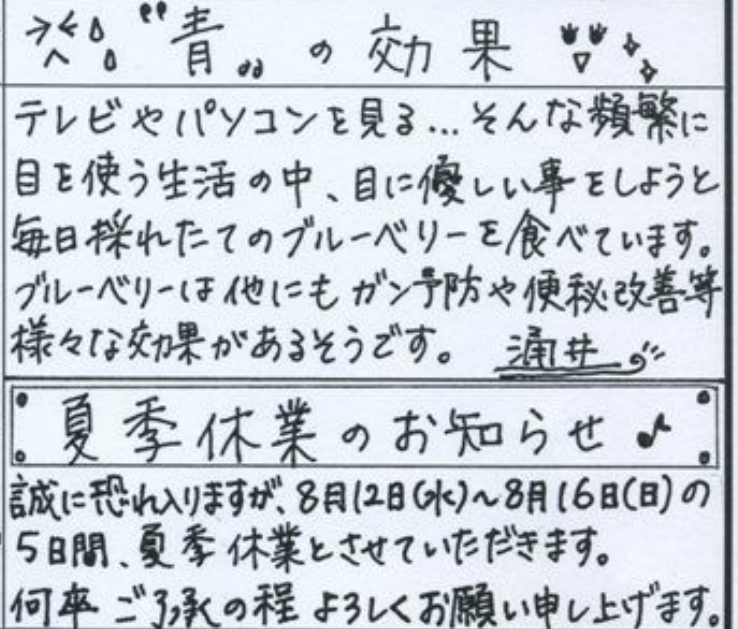 "青" の効果
テレビやパソコンを見る…そんな頻繁に
目を使う生活の中、目に優しい事をしようと
毎日採れたてのブルーベリーを食べています。
ブルーベリーは他にもガン予防や便秘改善等
様々な効果があるそうです。 涌井
夏季休業のお知らせ♪
誠に恐れ入りますが、8月12日(水)~8月16日(日)の
5日間、夏季休業とさせていただきます。
何卒ご了承の程よろしくお願い申し上げます。